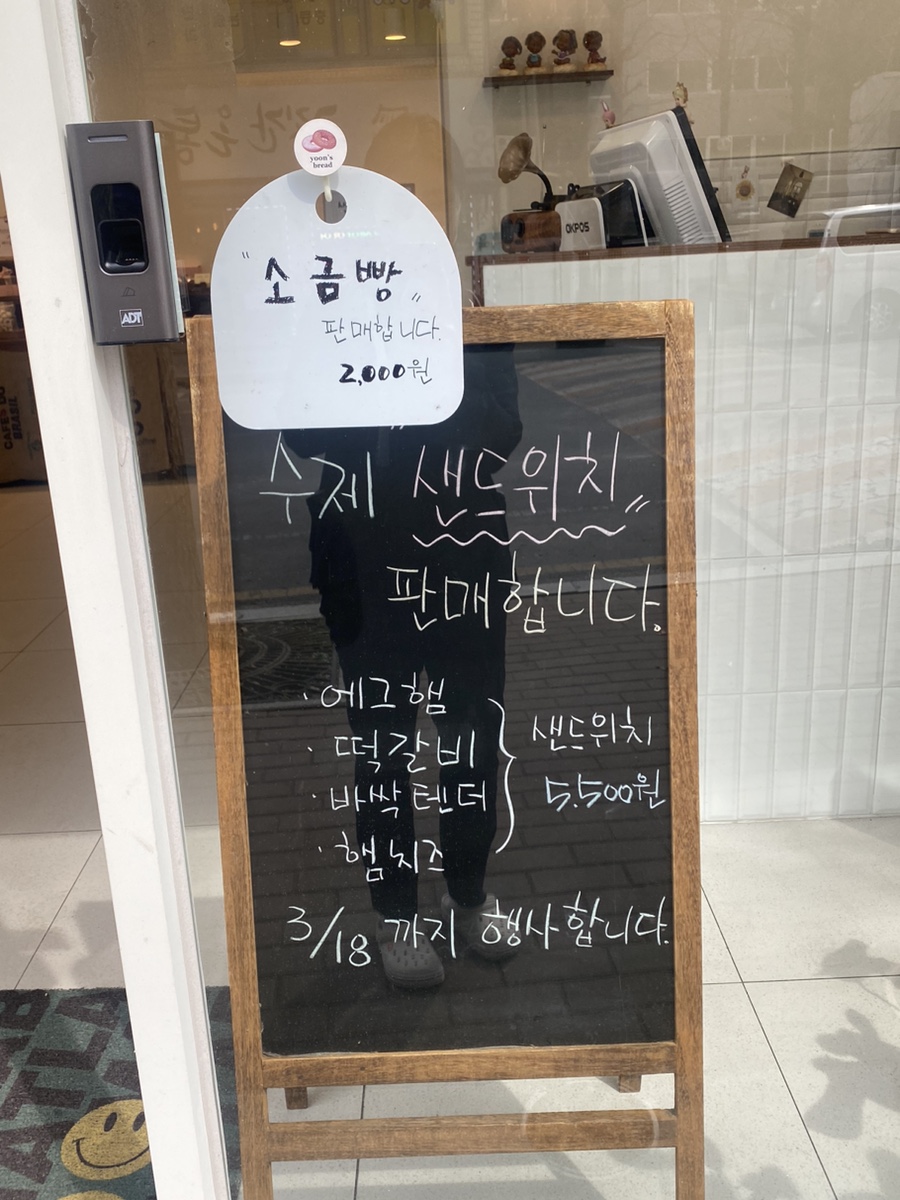 yoon's
bread
"소금빵"
판매합니다.
2,000원
ADT
OKPOS
CAFES DO
BRASIL
"수제 샌드위치"
판매합니다.
· 에그햄
· 떡갈비
· 바싹텐더
· 햄치즈
샌드위치
5,500원
3/18 까지 행사합니다.